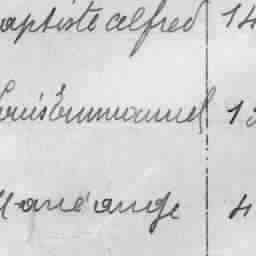 aptiste alfred 14
ouis Emmanuel 1
Marie ange 4